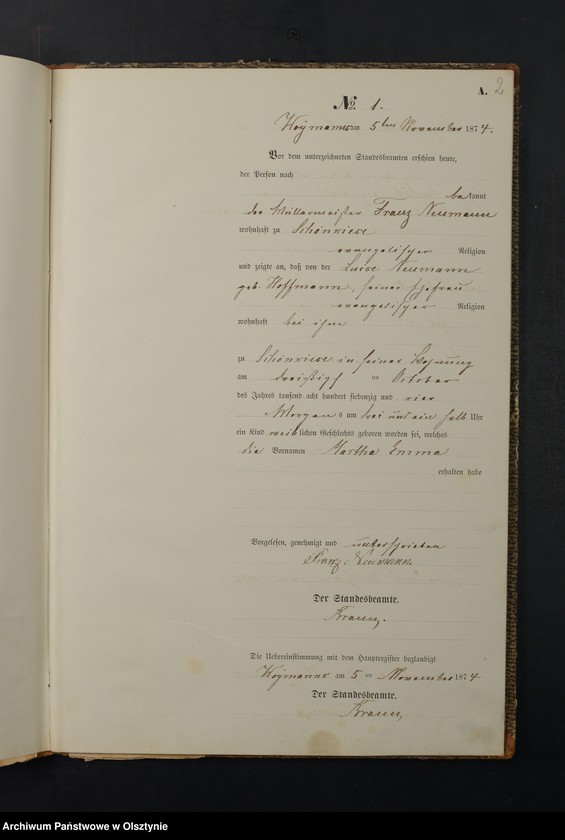 A. 2
No. 1.
Woymanns am 5ten November 1874.
Vor dem unterzeichneten Standesbeamten erschien heute,
der Person nach
bekannt
der Müllermeister Franz Neumann
wohnhaft zu Schönwiese
evangelischer Religion
und zeigte an, daß von der Luise Neumann
geb. Hoffmann, seiner Ehefrau
evangelischer Religion
wohnhaft bei ihm
zu Schönwiese in seiner Wohnung
am dreißigsten October
des Jahrs tausend acht hundert siebenzig und vier
Morgens um drei und ein halb Uhr
ein Kind weiblichen Geschlechts geboren worden sei, welches
die Vornamen Martha Emma
erhalten habe
Vorgelesen, genehmigt und unterschrieben
Franz Neumann
Der Standesbeamte.
Die Uebereinstimmung mit dem Hauptregister beglaubigt
Woymanns am 5ten November 1874
Der Standesbeamte.
Archiwum Państwowe w Olsztynie